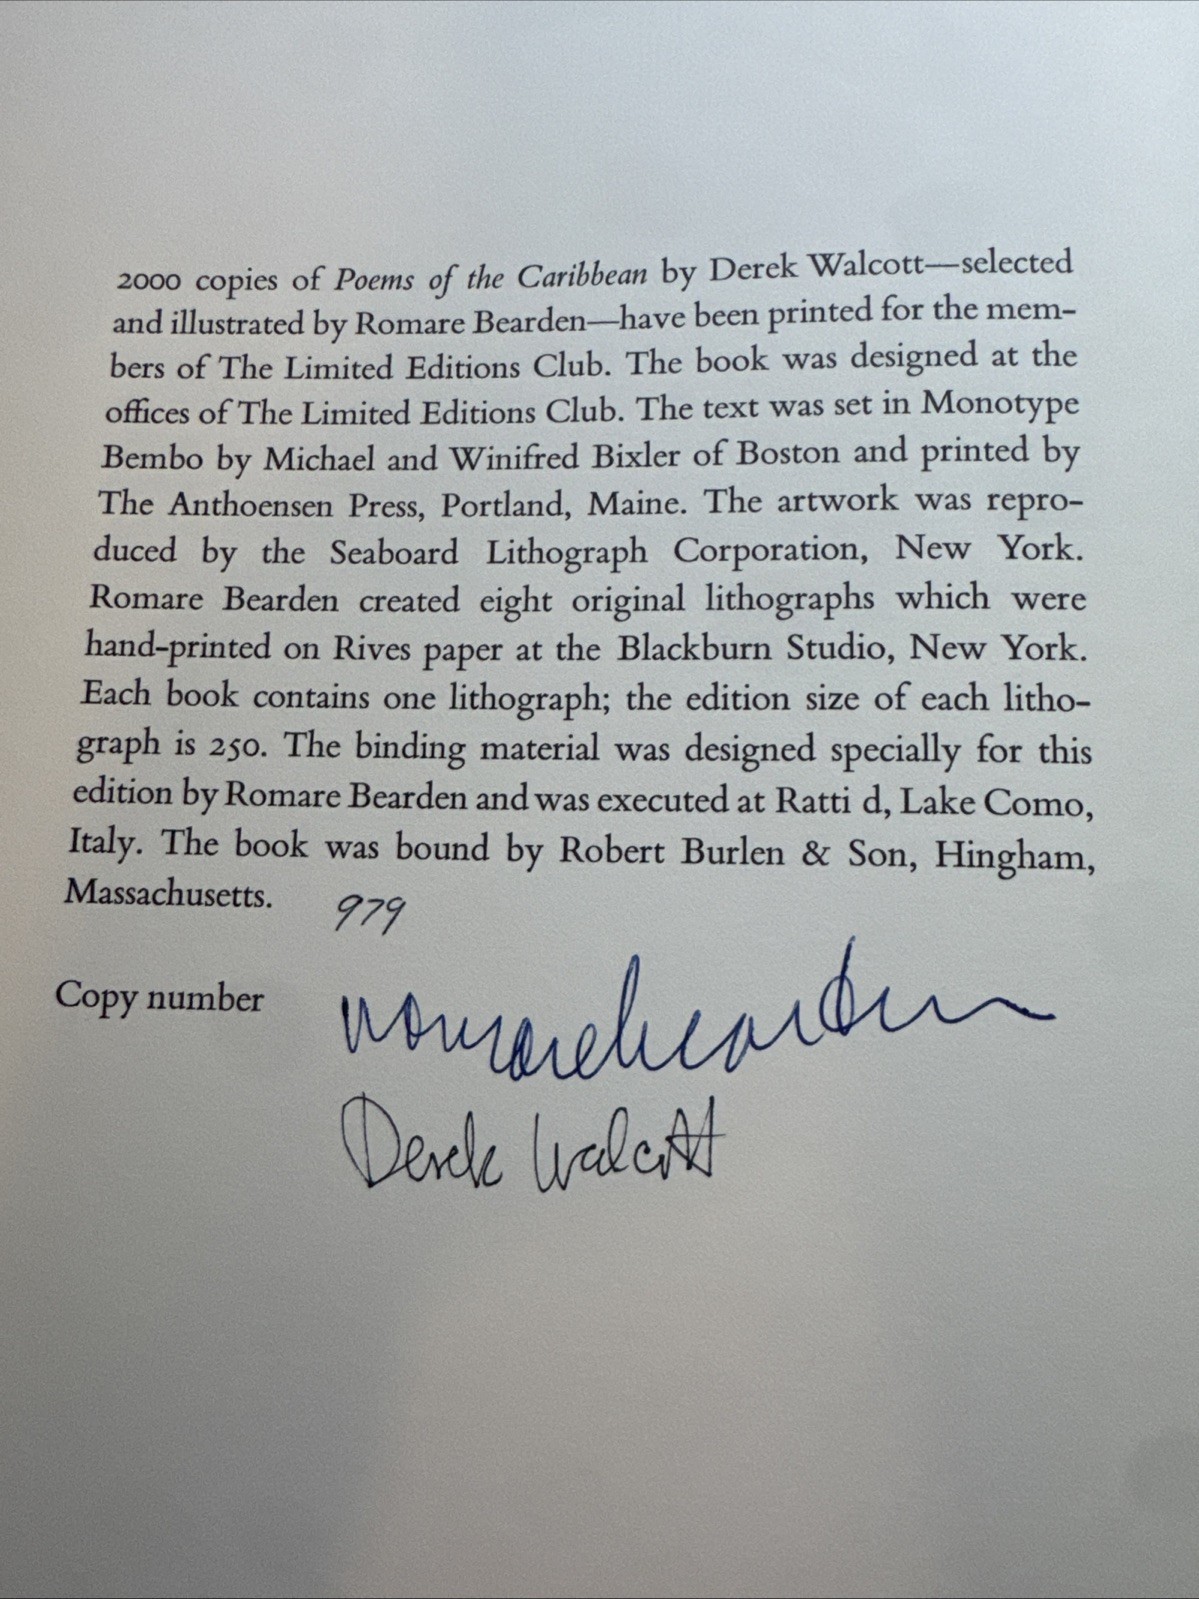 2000 copies of Poems of the Caribbean by Derek Walcott—selected
and illustrated by Romare Bearden—have been printed for the mem-
bers of The Limited Editions Club. The book was designed at the
offices of The Limited Editions Club. The text was set in Monotype
Bembo by Michael and Winifred Bixler of Boston and printed by
The Anthoensen Press, Portland, Maine. The artwork was repro-
duced by the Seaboard Lithograph Corporation, New York.
Romare Bearden created eight original lithographs which were
hand-printed on Rives paper at the Blackburn Studio, New York.
Each book contains one lithograph; the edition size of each litho-
graph is 250. The binding material was designed specially for this
edition by Romare Bearden and was executed at Ratti d, Lake Como,
Italy. The book was bound by Robert Burlen & Son, Hingham,
Massachusetts.
979
Copy number
romare bearden
Derek Walcott